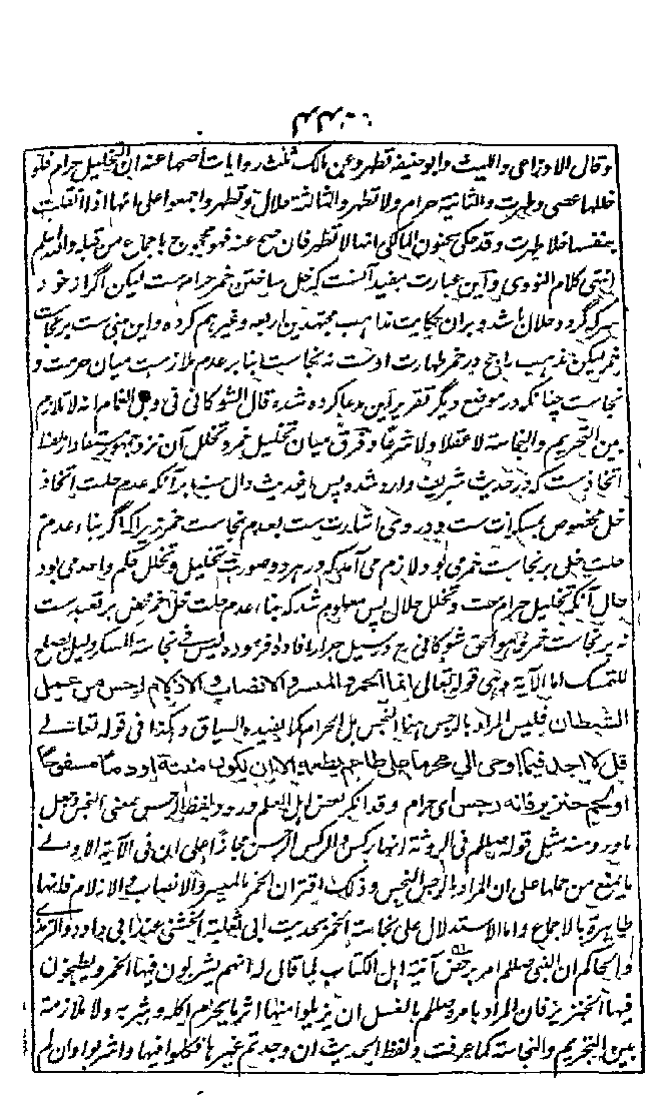 وقال الاوزاعی واللیث وابو حنیفة تطهر وعن مالک ثلث روایات اصحها عنه ان التخلیل حرام فلو
خللها عصی وطهرت والثانیة حرام ولا تطهر والثالثة حلال وتطهر واجمعوا علی انها اذا انقلبت
بنفسها خلا طهرت وقد حکی سحنون المالکی انها لا تطهر فان صح عنه فهو محجوج باجماع من قبله والله اعلم
انتهی کلام النووی و این عبارت مفید آنست که خل ساختن خمر حرام ست لیکن اگر از خود
سرکه گردد حلال باشد و بران حکایت مذاهب مجتهدین اربعه وغیرهم کرده و این مبنی ست بر نجاست
خمر لیکن مذهب راجح در خمر طهارت اوست نه نجاست بنا بر عدم ملازمت میان حرمت و
نجاست چنانکه در موضع دیگر تقریر این مدعا کرده شده قال الشوکانی فی وبل الغمام انه لا تلازم
بین التحریم والنجاسة لا عقلا ولا شرعا و فرق میان تخلیل خمر و تخلل آن نزد جمهور مستفاد از لفظ
اتخاذ ست که در حدیث شریف وارد شده پس این حدیث دال ست بر آنکه عدم حلت اتخاذ
خل مخصوص بمسکرات ست و در وی اشارت ست بعدم نجاست خمر زیرا که اگر بناء عدم
حلت خل بر نجاست خمر می بود لازم می آمد که در هر دو صورت تخلیل و تخلل حکم واحد می بود
حال آنکه تخلیل حرام ست و تخلل حلال پس معلوم شد که بناء عدم حلت خل خمر محض بر تعبد ست
نه بر نجاست خمر وهو الحق شوکانی رح در سیل جرار افاده فرموده لیس فی نجاسة المسکر دلیل یصلح
للتمسک اما الآیة وهی قوله تعالی انما الخمر والمیسر والانصاب والازلام رجس من عمل
الشیطان فلیس المراد بالرجس هنا النجس بل الحرام کما یفیده السیاق وهکذا فی قوله تعالی
قل لا اجد فیما اوحی الی محرما علی طاعم یطعمه الا ان یکون میتة او دما مسفوحا
او لحم خنزیر فانه رجس ای حرام وقد انکر بعض اهل العلم ورود لفظ الرجس بمعنی النجس وجعل
ما ورد منه مثل قوله صلعم فی الروثة انها رکس والرکس الرجس مجازا علی ان فی الآیة الاولی
ما یمنع من حملها علی ان المراد بالرجس النجس وذلک اقتران الخمر بالمیسر والانصاب والازلام فانها
طاهرة بالاجماع واما الاستدلال علی نجاسة الخمر بحدیث ابی ثعلبة الخشنی عند ابی داود والترمذی
والحاکم ان النبی صلعم امر برحض آنیة اهل الکتاب لما قال له انهم یشربون فیها الخمر ویطبخون
فیها الخنزیر فان المراد بامره صلعم بالغسل ان یزیلوا منها اثر ما یحرم اکله وشربه ولا ملازمة
بین التحریم والنجاسة کما عرفت ولفظ الحدیث ان وجدتم غیرها فکلوا فیها واشربوا وان لم